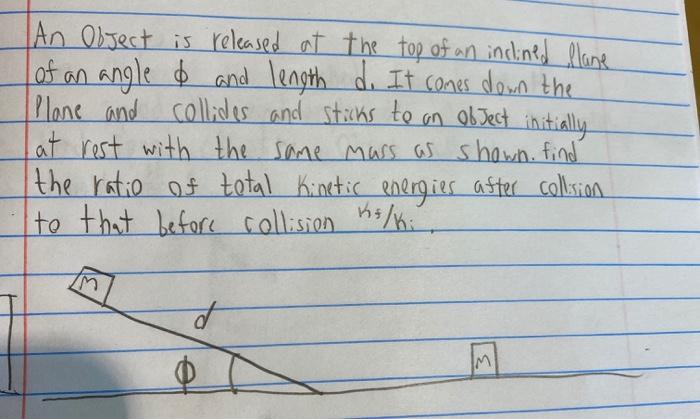 An Object is released at the top of an inclined Plane
of an angle ϕ and length d. It comes down the
Plane and collides and sticks to an object initially
at rest with the same mass as shown. find
the ratio of total kinetic energies after collision
to that before collision Kf/Ki.
M
d
ϕ
M